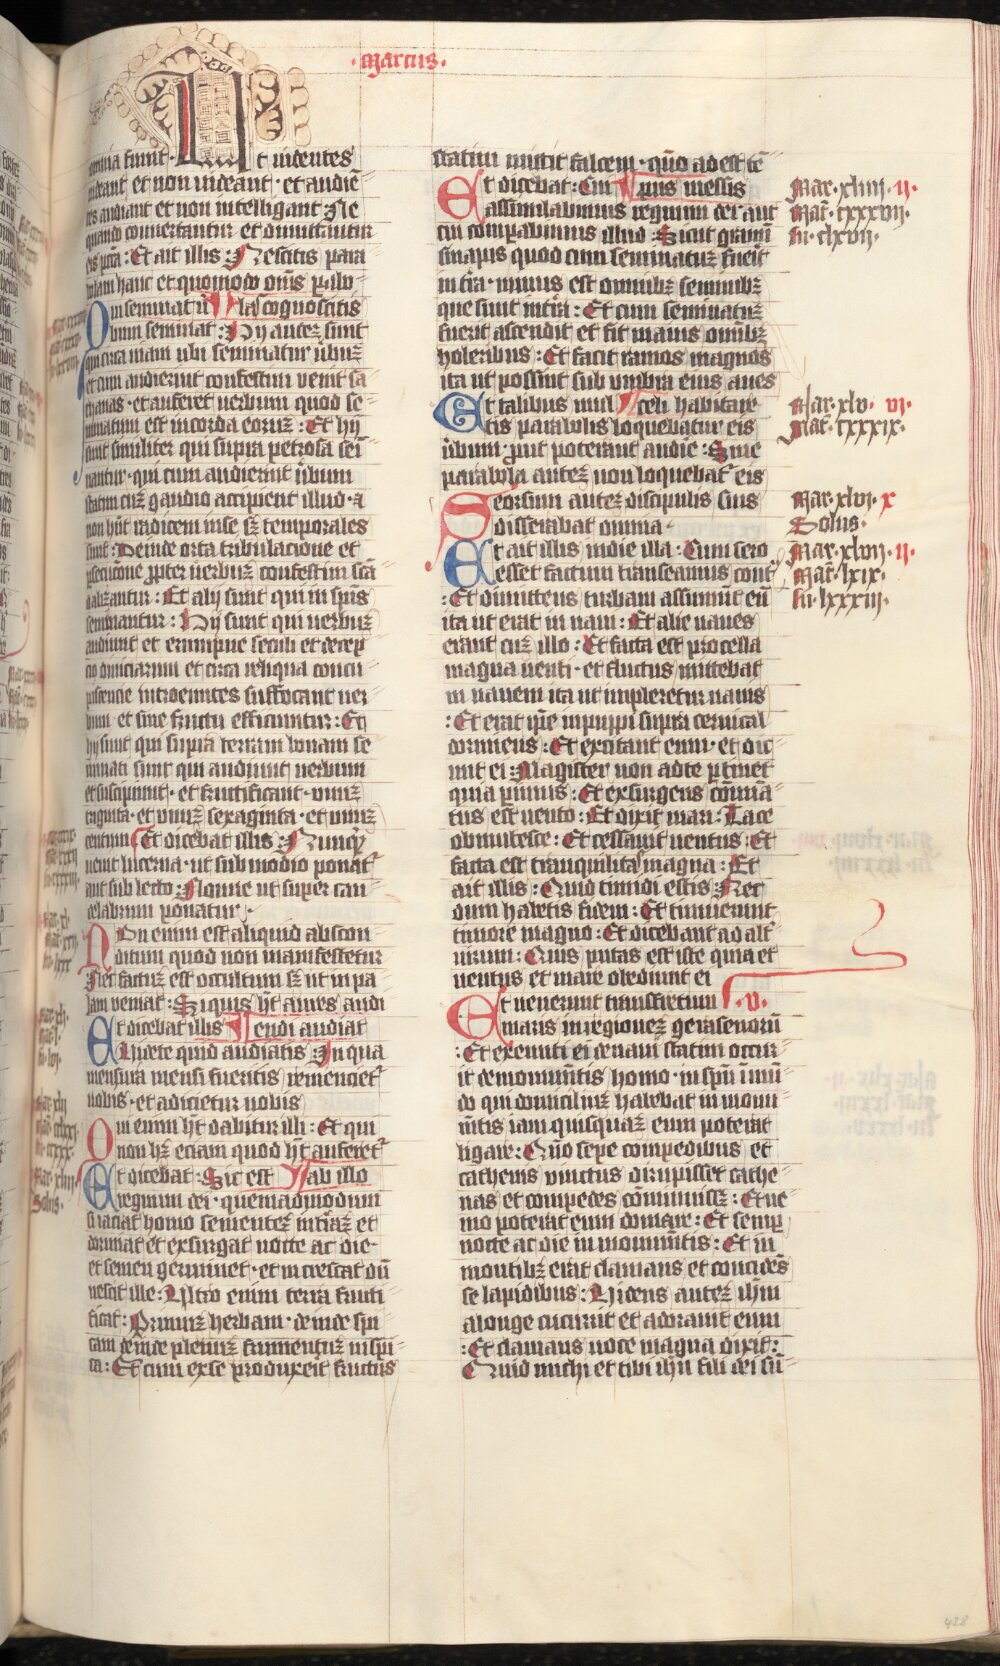 ·Marcus·
omnia fiunt· Ut uidentes
uideant et non uideant· et audiē
tes audiant et non intelligant Ne
quando conuertantur et dimittantur
eis pctā: Et ait illis: Nescitis para
bolam hanc et quomodo om̄s pabo
las cognoscitis
Qui seminat u
bum seminat: Hij autez sunt
qui circa uiam ubi seminatur ūbuz
et cum audierint confestim uenit sa
thanas· et auferet uerbum quod se
minatum est in corda eoruz: Et hij
sunt similiter qui supra petrosa sei
nantur· qui cum audierint ūbum
statim cuz gaudio accipient illud· &
non hn̄t radicem in se sz temporales
sunt: Deinde orta tribulacione et
psecucōne ppter uerbuz confestim scā
dalizantur: Et alij sunt qui in spis
seminantur: Hij sunt qui uerbuz
audiunt et erumpne seculi et decep
cio diuiciarum et circa reliqua concu
piscencie introeuntes suffocant uer
bum et sine fructu efficiuntur: Et
hij sunt qui supra terram bonam se
minati sunt qui audiunt uerbum
et suscipiunt· et fructificant· vnuz
triginta· et vnuz sexaginta· et vnuz
centum Et dicebat illis: Nunqz
uenit lucerna· ut sub modio ponat
aut sub lecto: Nonne ut super can
delabrum ponatur·
Non enim est aliquid abscon
ditum quod non manifestetur
Nec factuz est occultum sz ut in pa
lam ueniat: Siquis ht aures audi
endi audiat
Et dicebat illis
Uidete quid audiatis In qua
mensura mensi fueritis remenciet
uobis· et adicietur uobis
Qui enim ht dabitur illi: Et qui
non hz eciam quod ht auferet
ab illo
Et dicebat: Sic est
regnum dei· quemadmodum
si iaciat homo sementez in trāz et
dormiat et exsurgat nocte ac die·
et semen germinet· et increscat dū
nescit ille: Ultro enim terra fructi
ficat: Primuz herbam· deinde spi
cam deinde plenuz frumentuz in spi
ca: Et cum ex se produxerit fructus
statim mittit falcem· qm̄o adest
Et dicebat: Cui
rnus messis
assimilabimus regnum dei aut
cui compabimus illud: Sicut granū
sinapis quod cum seminatuz fuerit
in tr̄a· minus est omnibz seminibz
que sunt in tr̄a: Et cum seminatuz
fuerit ascendit et fit maius om̄ibz
holeribus: Et facit ramos magnos
ita ut possint sub vmbra eius aues
celi habitare
Et talibus mul
tis parabolis loquebatur eis
ūbum· put poterant audire: Sine
parabola autez non loquebat eis
Seorsum autez discipulis suis
disserabat omnia·
Et ait illis in die illa: Cum sero
esset factum transeamus cont
: Et dimittens turbam assumūt eū
ita ut erat in naui: Et alie naues
erant cuz illo: Et facta est procella
magna uenti· et fluctus mittebat
in nauem ita ut impleretur nauis
: Et erat ipe in puppi supra ceruical
dormiens: Et excitant eum· et dic
unt ei: Magister non ad te ptinet
quia pimus: Et exsurgens cōmia
tus est uento: Et dixit mari: Tace
obmutesce: Et cessauit uentus: Et
facta est tranquilitas magna: Et
ait illis: Quid timidi estis: Nec
dum habetis fidem: Et timuerunt
timore magno: Et dicebant ad alt
utrum: Quis putas est iste quia et
uentus et mare obediunt ei
Et uenerunt transfretum ·v·
maris in regionez gerasenorū
: Et exeunti ei de naui statim occur
it de monumētis homo· in spū imū
do qui domiciliuz habebat in monu
mētis iam quisquaz eum poterat
ligare: Qm̄o sepe compedibus et
cathenis vinctus dirupisset cathe
nas et compedes cōminuisz: Et ne
mo poterat eum domare: Et semp
nocte ac die in monumētis: Et in
montibz erat clamans et concidēs
se lapidibus: Uidens autez ihm
a longe cucurrit et adorauit eum
: Et clamans uoce magna dixit:
Quid michi et tibi ihu fili dei sū
Mar·xliiii· ii·
Mat̄·cxxxvii·
lu·clxvii·
Mar·xlv· vi·
Mat̄·cxxxix·
Mar·xlvi· x
Solus·
Mar·xlvii· ii·
Mat̄·lxix·
lu·lxxxiii·
428